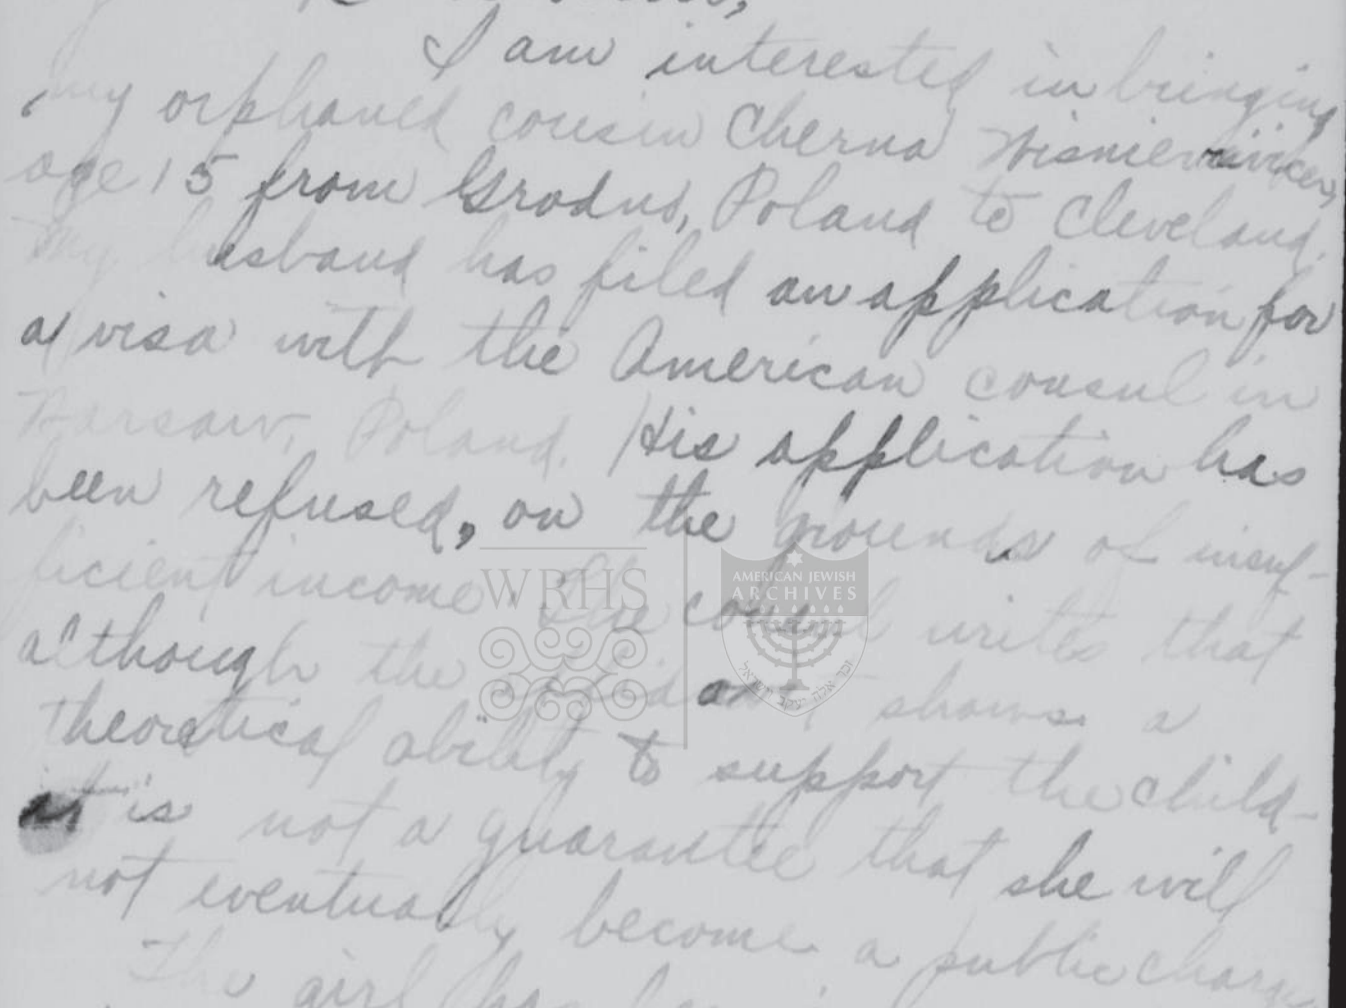 I am interested in bringing
my orphaned cousin Cherna
age 15 from Grodno, Poland to Cleveland.
My husband has filed an application for
a visa with the American consul in
Warsaw, Poland. His application has
been refused, on the grounds of insuf-
ficient income. The consul writes that
although the affidavit shows a
theoretical ability to support the child-
it is not a guarantee that she will
not eventually become a public charge
The girl has
WRHS
AMERICAN JEWISH
ARCHIVES